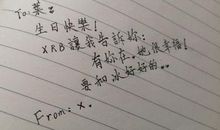 To:葉子
生日快樂!
XRB讓我告訴妳:
有妳在,她很幸福!
要和冰好好的..
From: x.